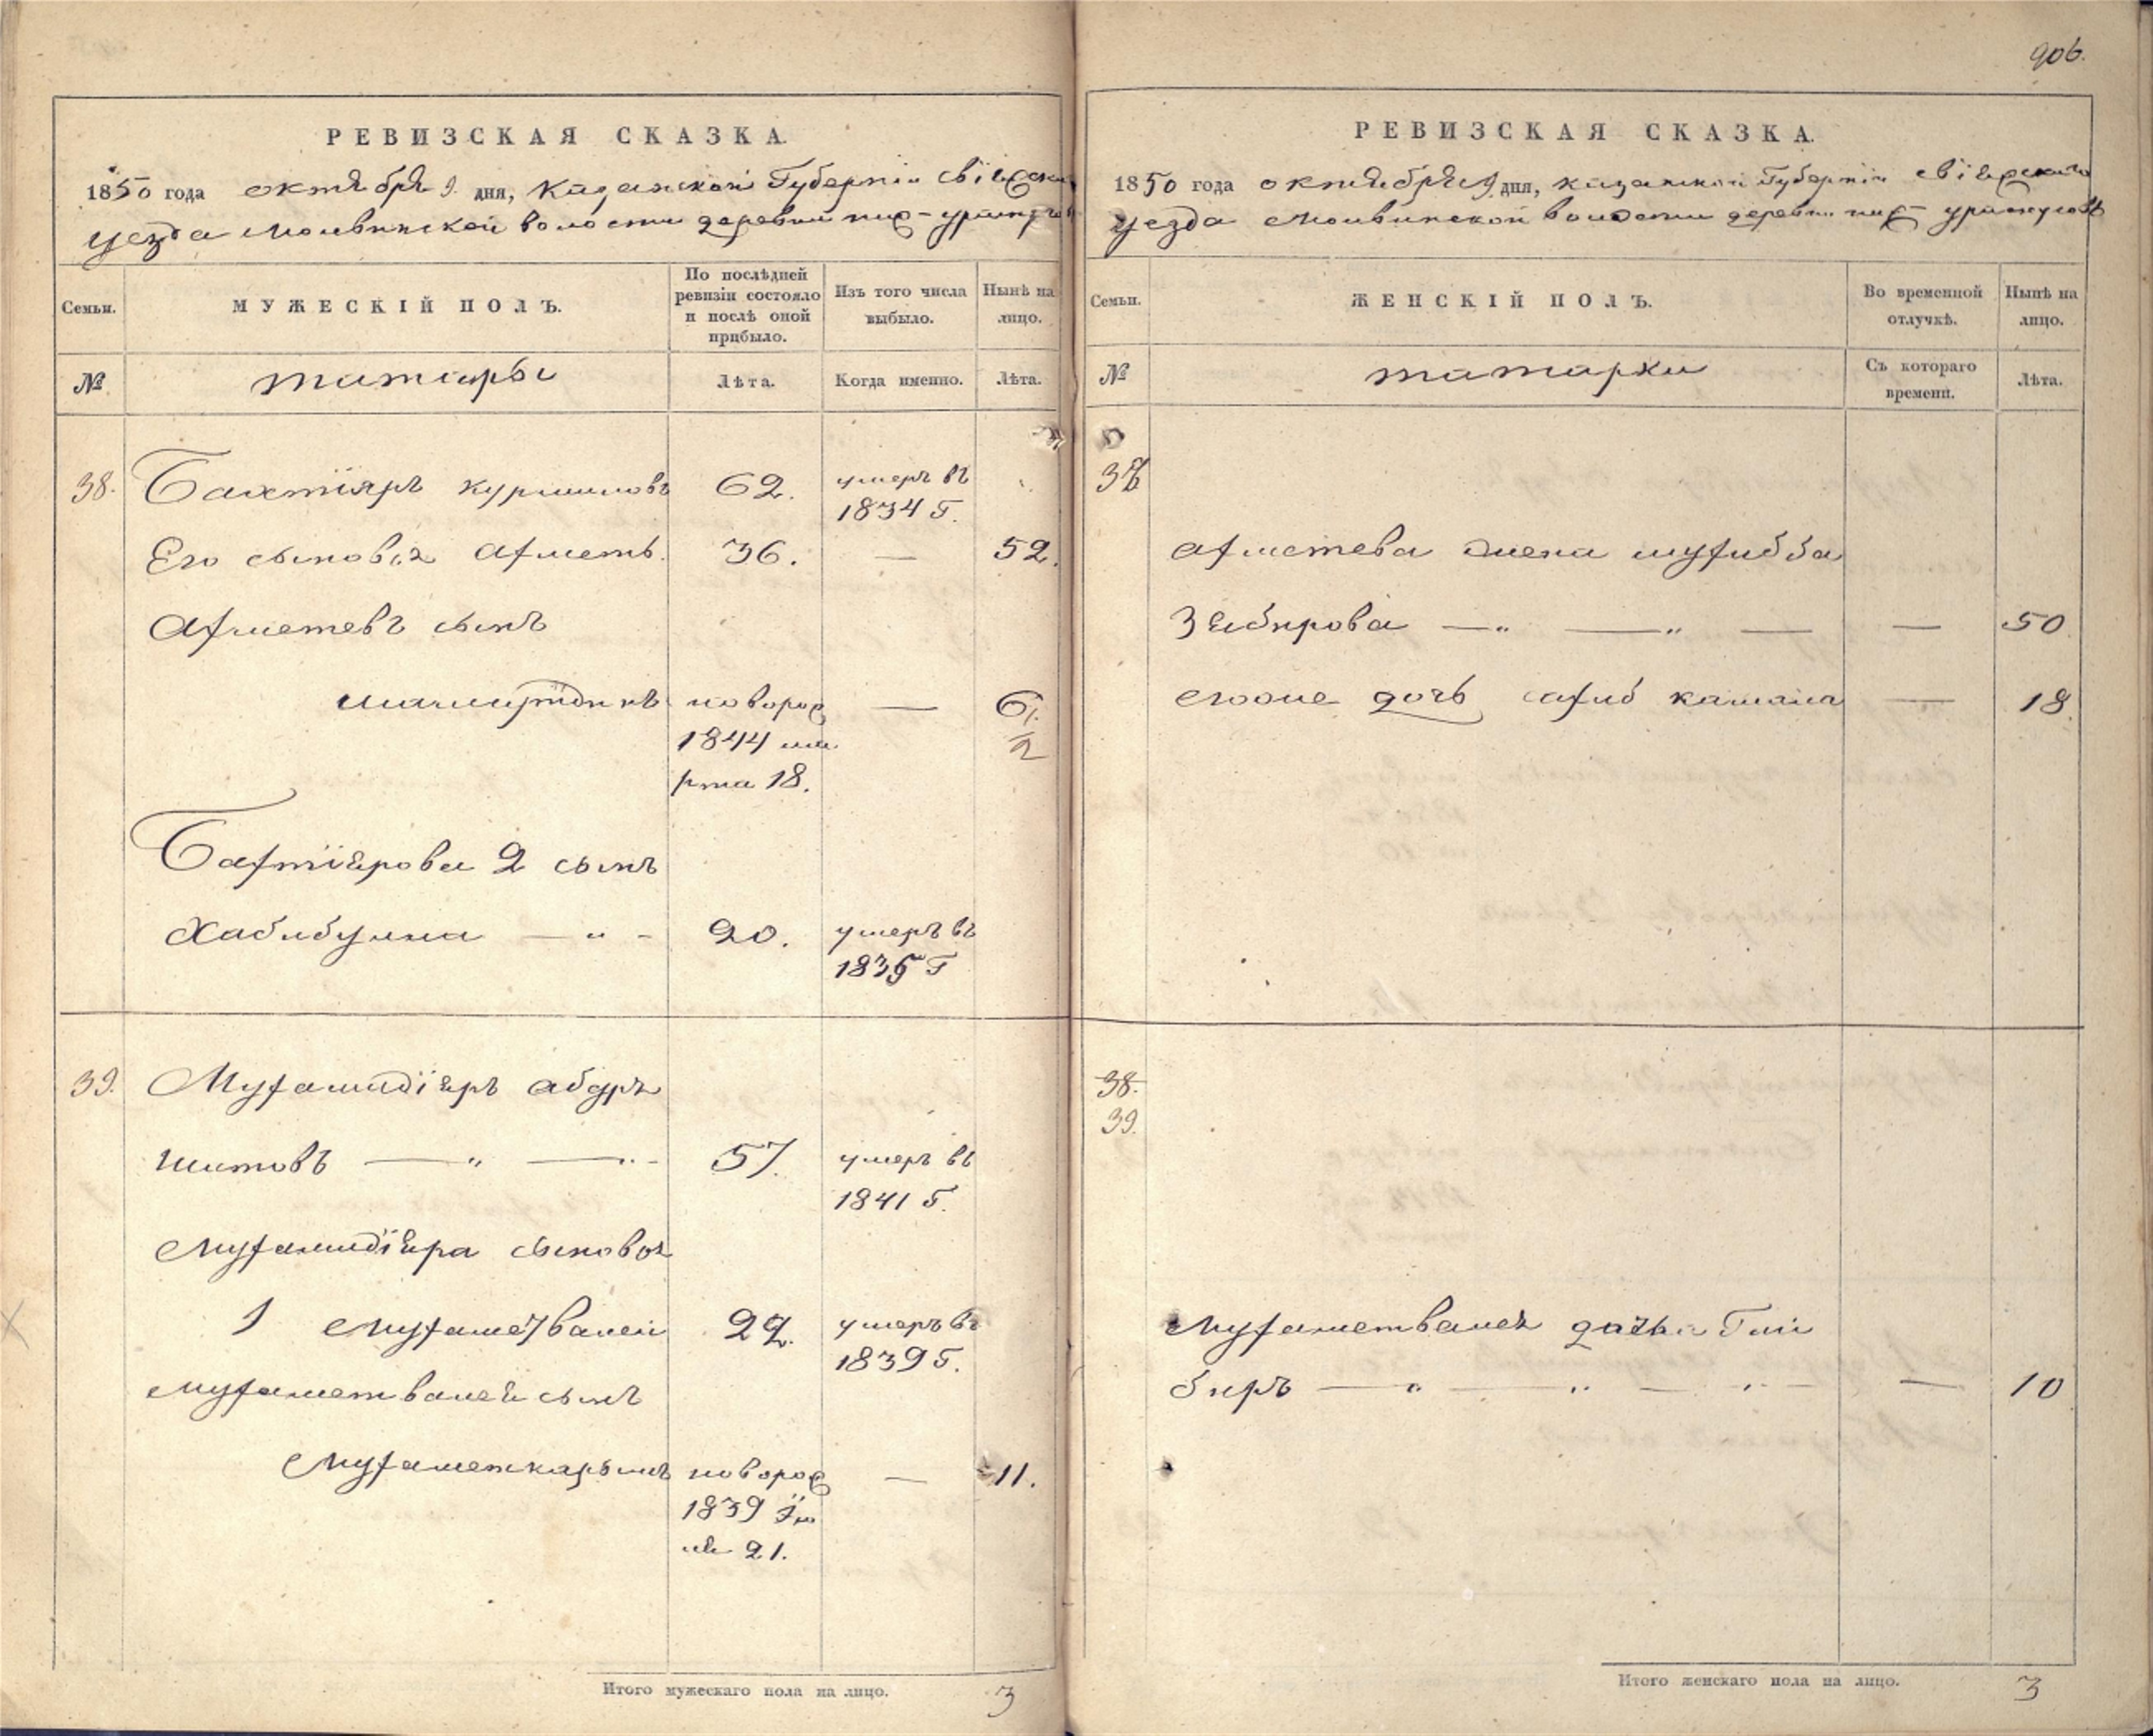 906.
РЕВИЗСКАЯ СКАЗКА.
1850 года октября 9 дня, Казанской Губерніи Свіяжскаго
уезда Молвинской волости деревни
Семьи.
МУЖЕСКІЙ ПОЛЪ.
По послѣдней ревизіи состояло и послѣ оной прибыло.
Изъ того числа выбыло.
Нынѣ на лицо.
№
татары
Лѣта.
Когда именно.
Лѣта.
38. Бахтіяръ 62. умеръ въ
1834 Г.
Его сыновья Ахметь. 36. — 52.
Ахметевъ сынъ
новорож — 6 1/2
1844 ма
рта 18.
Бахтіярова 2 сынъ
Хабибулла — " - 20. умеръ въ
183 Г
39. Мухамидіяръ абдръ
шитовъ — " — " - 57. умеръ въ
1841 Г.
Мухамидіяра сыновья
1 Мухаметвалей 22. умеръ въ
1839 Г.
Мухаметвалея сынъ
Мухаметкарымъ новорож — 11.
1839
21.
Итого мужескаго пола на лицо. 3
РЕВИЗСКАЯ СКАЗКА.
1850 года октября 9 дня, Казанской Губерніи Свіяжскаго
уезда Молвинской волости деревни
Семьи.
ЖЕНСКІЙ ПОЛЪ.
Во временной отлучкѣ.
Нынѣ на лицо.
№
татарки
Съ котораго времени.
Лѣта.
38
Ахметева жена мухибба
Зябирова — " — " — — 50
егоже дочь камала — 18.
38.
39.
Мухаметвалея дочь Гай
биръ — " — " — " — — 10
Итого женскаго пола на лицо. 3